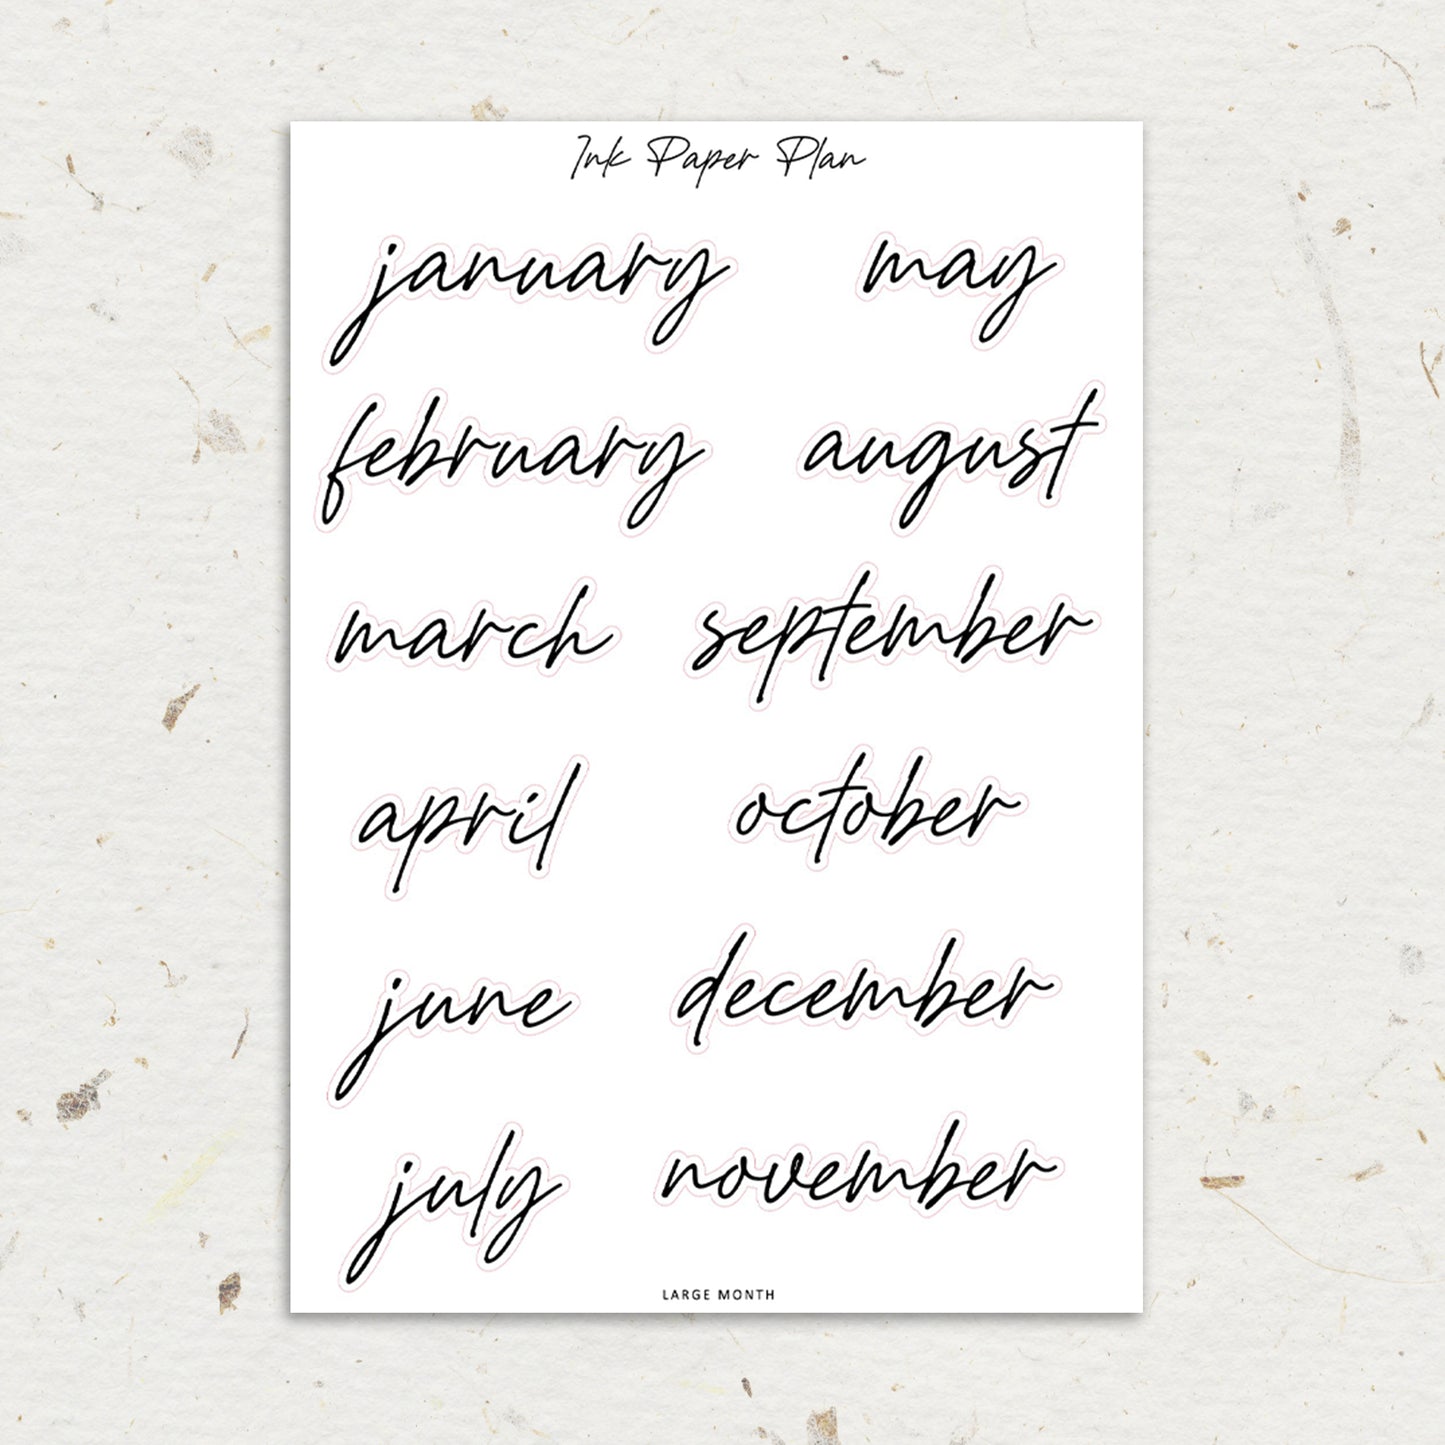 Ink Paper Plan
january
may
february
august
march
september
april
october
june
december
july
november
LARGE MONTH